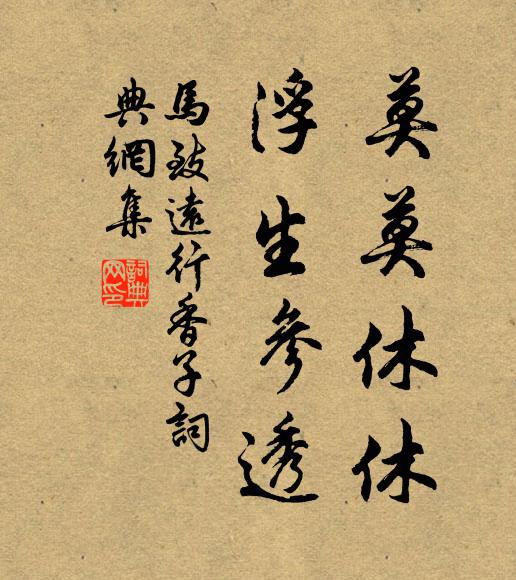 莫莫休休
浮生參透
馬致遠行香子詞
典網集
詞典网印